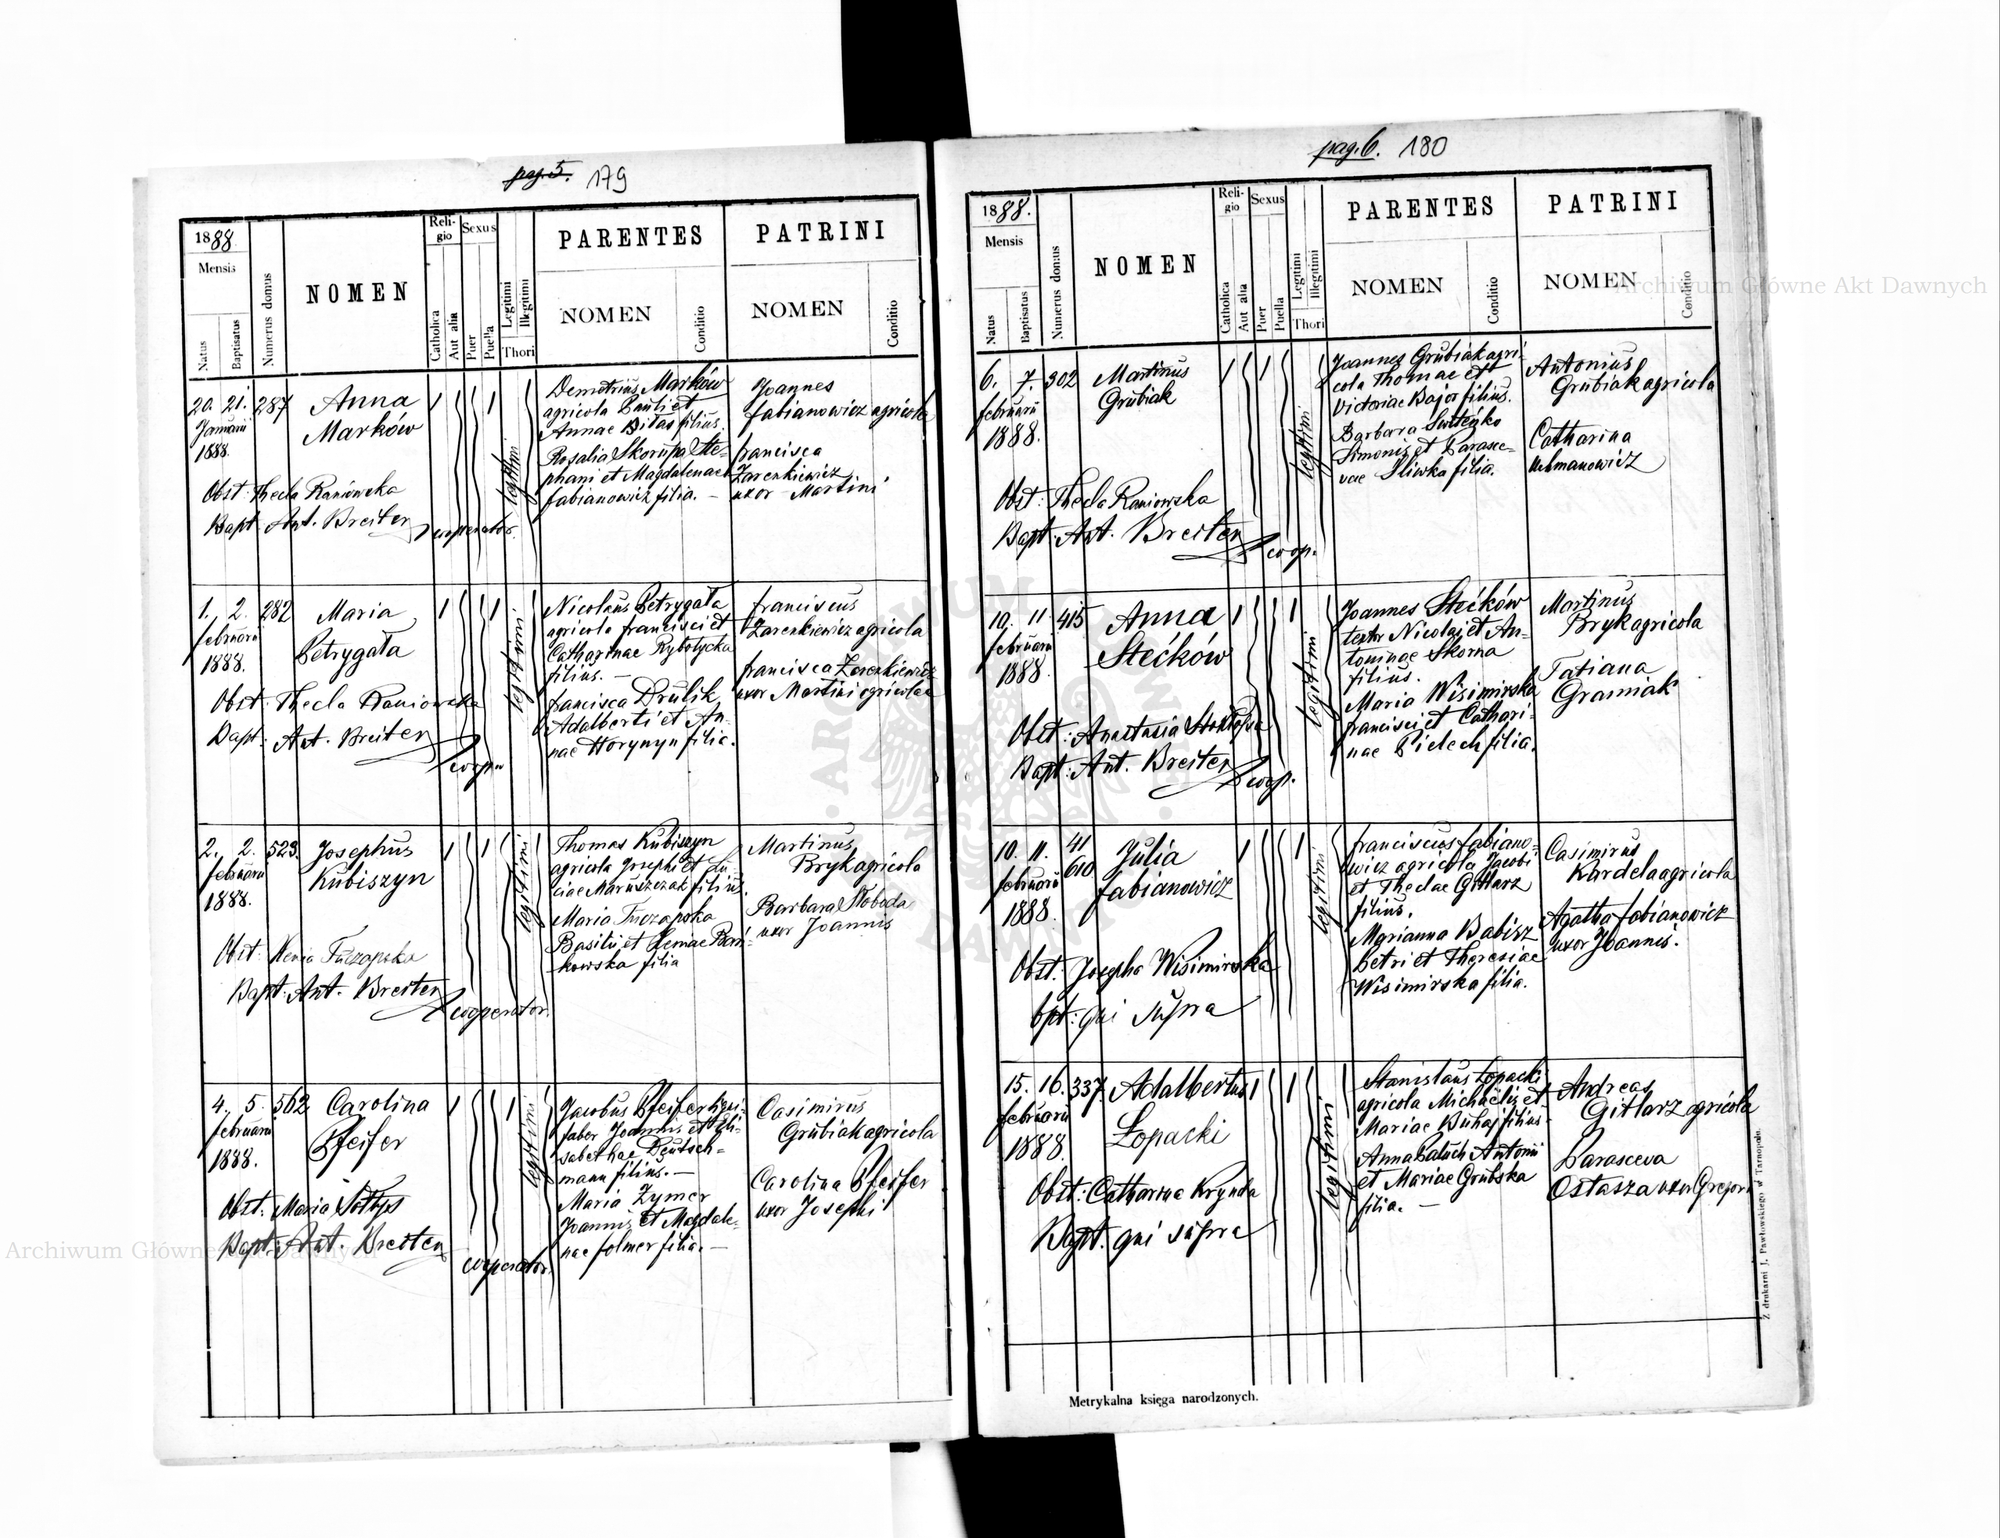 pag. 5. 179
1888
Mensis
Natus
Baptisatus
Numerus domus
NOMEN
Religio
Catholica
Aut alia
Sexus
Puer
Puella
Legitimi
Illegitimi
Thori
PARENTES
NOMEN
Conditio
PATRINI
NOMEN
Conditio
20. 21. 287 Anna
Januarii Marków
1888.
Obst: Thecla Raniowska
Bapt: Ant. Breiter cooperator.
legitimi
Demetrius Marków
agricola Pauli et
Annae Bilas filius.
Rosalia Skorupa Ste-
phani et Magdalenae
Fabianowicz filia. —
Joannes
Fabianowicz agricola
Francisca
Zarenkiewicz
uxor Martini
1. 2. 282 Maria
Februarii Petrygała
1888.
Obst: Thecla Raniowska
Bapt: Ant. Breiter coop.
legitimi
Nicolaus Petrygała
agricola Francisci et
Catharinae Rybotycka
filius. —
Fancisca Drulik
Adalberti et An-
nae Horynyn filia.
Franciscus
Zarenkiewicz agricola
Francisca Zarenkiewicz
uxor Martini agricolae
2. 2. 523. Josephus
Februarii Kubiszyn
1888.
Obst: Xenia Tuczapska
Bapt: Ant. Breiter cooperator.
legitimi
Thomas Kubiszyn
agricola Josephi et Lu-
ciae Maruszczak filius.
Maria Tuczapska
Basilii et Xeniae Bori-
kowska filia
Martinus
Bryk agricola
Barbara Słoboda
uxor Joannis
4. 5. 562. Carolina
Februarii Pfeifer
1888.
Obst: Maria Sołtys
Bapt: Ant. Breiter cooperator.
legitimi
Jacobus Pfeifer ligni-
faber Joannis et Eli-
sabethae Deutsch-
mann filius. —
Maria Zymer
Joannis et Magdale-
nae Folmer filia. —
Casimirus
Grubiak agricola
Carolina Pfeifer
uxor Josephi
pag. 6. 180
1888.
Mensis
Natus
Baptisatus
Numerus domus
NOMEN
Religio
Catholica
Aut alia
Sexus
Puer
Puella
Legitimi
Illegitimi
Thori
PARENTES
NOMEN
Conditio
PATRINI
NOMEN
Conditio
6. 7. 302 Martinus
Februarii Grubiak
1888.
Obst: Thecla Raniowska
Bapt: Ant. Breiter coop.
legitimi
Joannes Grubiak agri-
cola Thomae et
Victoriae Bajor filius.
Barbara
Simonis et Parasce-
vae Sliwka filia.
Antonius
Grubiak agricola
Catharina
Urbanowicz
10. 11 415 Anna
Februarii Stećków
1888.
Obst: Anastasia
Bapt: Ant. Breiter coop.
legitimi
Joannes Stećków
textor Nicolai et An-
toninae Skorna
filius.
Maria Wisimirska
Francisci et Cathari-
nae Pidech filia.
Martinus
Bryk agricola
Tatiana
Graniak
10. 11. 41 Julia
Februarii 610 Fabianowicz
1888.
Obst: Josepha Wisimirska
bpt: qui supra
legitimi
Franciscus Fabiano-
wicz agricola Jacobi
et Theclae Gitlarz
filius.
Marianna Babisz
Petri et Theresiae
Wisimirska filia.
Casimirus
Kardela agricola
Agatha Fabianowicz
uxor Joannis.
15. 16. 337. Adalbertus
Februarii Łopacki
1888.
Obst: Catharina Krynda
Bapt. qui supra
legitimi
Stanislaus Łopacki
agricola Michaëlis et
Mariae Buhaj filius.
Anna Baluch Antonii
et Mariae Grubska
filia. —
Andreas
Gitlarz agricola
Parasceva
Ostasza uxor Gregorii
Metrykalna księga narodzonych.
Z drukarni J. Pawłowskiego w Tarnopolu.
Archiwum Główne Akt Dawnych
Archiwum Główne Akt Dawnych